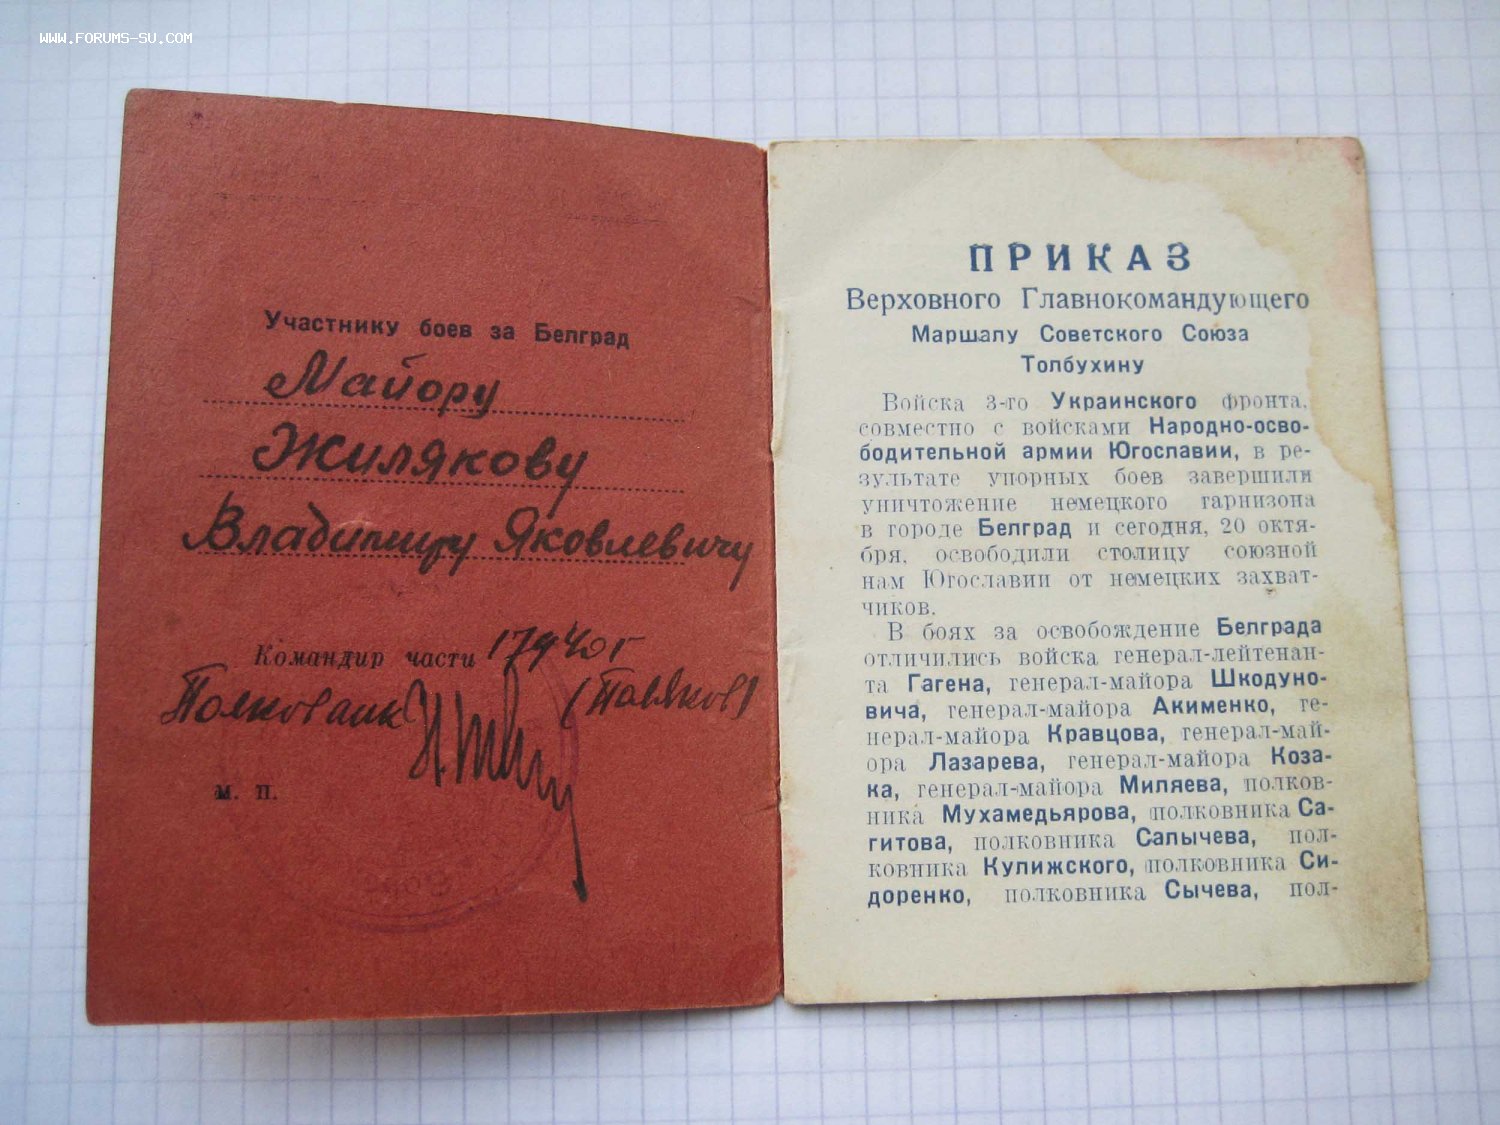 WWW.FORUMS-SU.COM
Участнику боев за Белград
Майору
Жилякову
Владимиру Яковлевичу
Командир части
Полковник
м. п.
ПРИКАЗ
Верховного Главнокомандующего
Маршалу Советского Союза
Толбухину
Войска 3-го Украинского фронта,
совместно с войсками Народно-осво-
бодительной армии Югославии, в ре-
зультате упорных боев завершили
уничтожение немецкого гарнизона
в городе Белград и сегодня, 20 октя-
бря, освободили столицу союзной
нам Югославии от немецких захват-
чиков.
В боях за освобождение Белграда
отличились войска генерал-лейтенан-
та Гагена, генерал-майора Шкодуно-
вича, генерал-майора Акименко, ге-
нерал-майора Кравцова, генерал-май-
ора Лазарева, генерал-майора Коза-
ка, генерал-майора Миляева, полков-
ника Мухамедьярова, полковника Са-
гитова, полковника Салычева, пол-
ковника Кулижского, полковника Си-
доренко, полковника Сычева, пол-